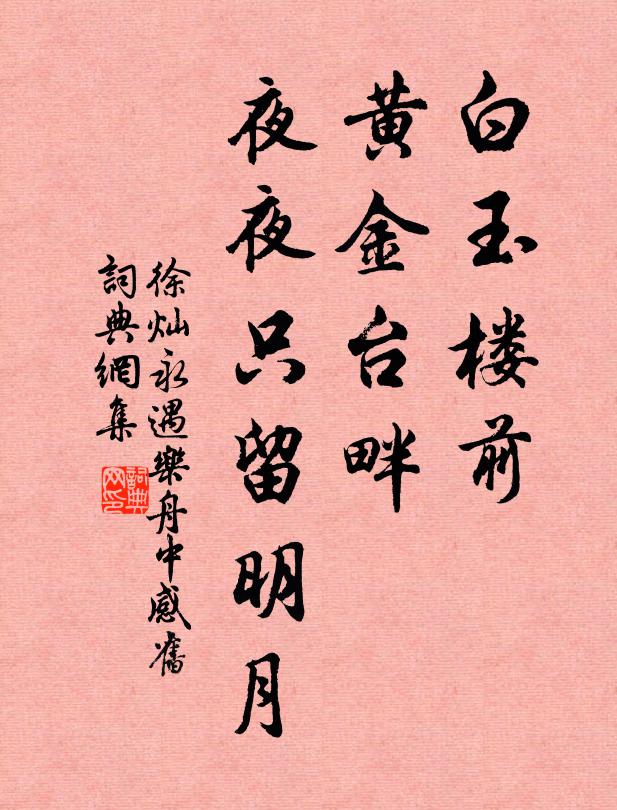 白玉楼前
黄金台畔
夜夜只留明月
徐灿永遇樂舟中感舊
詞典網集
詞典
网印